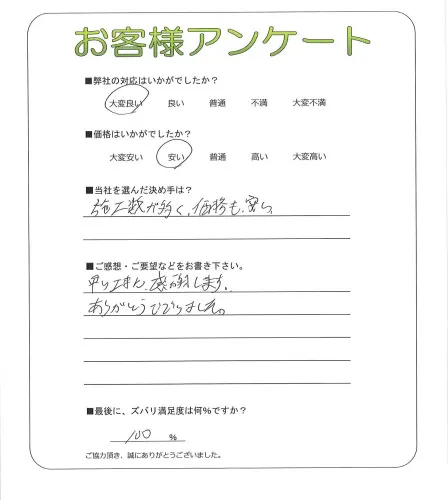 お客様アンケート
■弊社の対応はいかがでしたか?
大変良い 良い 普通 不満 大変不満
■価格はいかがでしたか?
大変安い 安い 普通 高い 大変高い
■当社を選んだ決め手は?
施工数が多く、価格も安い
■ご感想・ご要望などをお書き下さい。
感謝します。
ありがとうございました。
■最後に、ズバリ満足度は何%ですか?
100 %
ご協力頂き、誠にありがとうございました。